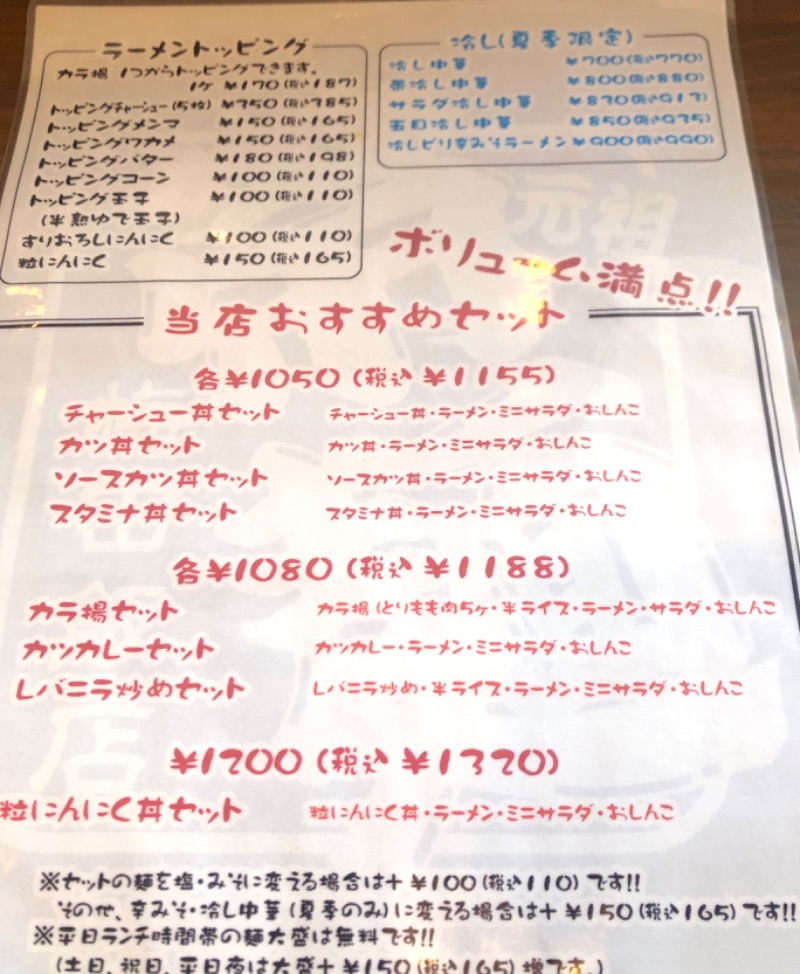 ラーメントッピング
カラ揚 1つからトッピングできます。
1ケ ¥170(税込187)
トッピングチャーシュー(5枚) ¥350(税込385)
トッピングメンマ ¥150(税込165)
トッピングワカメ ¥150(税込165)
トッピングバター ¥180(税込198)
トッピングコーン ¥100(税込110)
トッピング玉子 ¥100(税込110)
(半熟ゆで玉子)
すりおろしにんにく ¥100(税込110)
粒にんにく ¥150(税込165)
冷し(夏季限定)
冷し中華 ¥700(税込770)
帯冷し中華 ¥800(税込880)
サラダ冷し中華 ¥830(税込913)
五目冷し中華 ¥850(税込935)
冷しピリ辛みそラーメン ¥900(税込990)
元祖
ボリューム満点!!
当店おすすめセット
各¥1050(税込¥1155)
チャーシュー丼セット チャーシュー丼・ラーメン・ミニサラダ・おしんこ
カツ丼セット カツ丼・ラーメン・ミニサラダ・おしんこ
ソースカツ丼セット ソースカツ丼・ラーメン・ミニサラダ・おしんこ
スタミナ丼セット スタミナ丼・ラーメン・ミニサラダ・おしんこ
各¥1080(税込¥1188)
カラ揚セット カラ揚(とりもも肉5ヶ・半ライス・ラーメン・サラダ・おしんこ
カツカレーセット カツカレー・ラーメン・ミニサラダ・おしんこ
レバニラ炒めセット レバニラ炒め・半ライス・ラーメン・ミニサラダ・おしんこ
¥1200(税込¥1320)
粒にんにく丼セット 粒にんにく丼・ラーメン・ミニサラダ・おしんこ
※セットの麺を塩・みそに変える場合は+¥100(税込110)です!!
その他、辛みそ・冷し中華(夏季のみ)に変える場合は+¥150(税込165)です!!
※平日ランチ時間帯の麺大盛は無料です!!
(土日、祝日、平日夜は大盛+¥150(税込165)増です。)